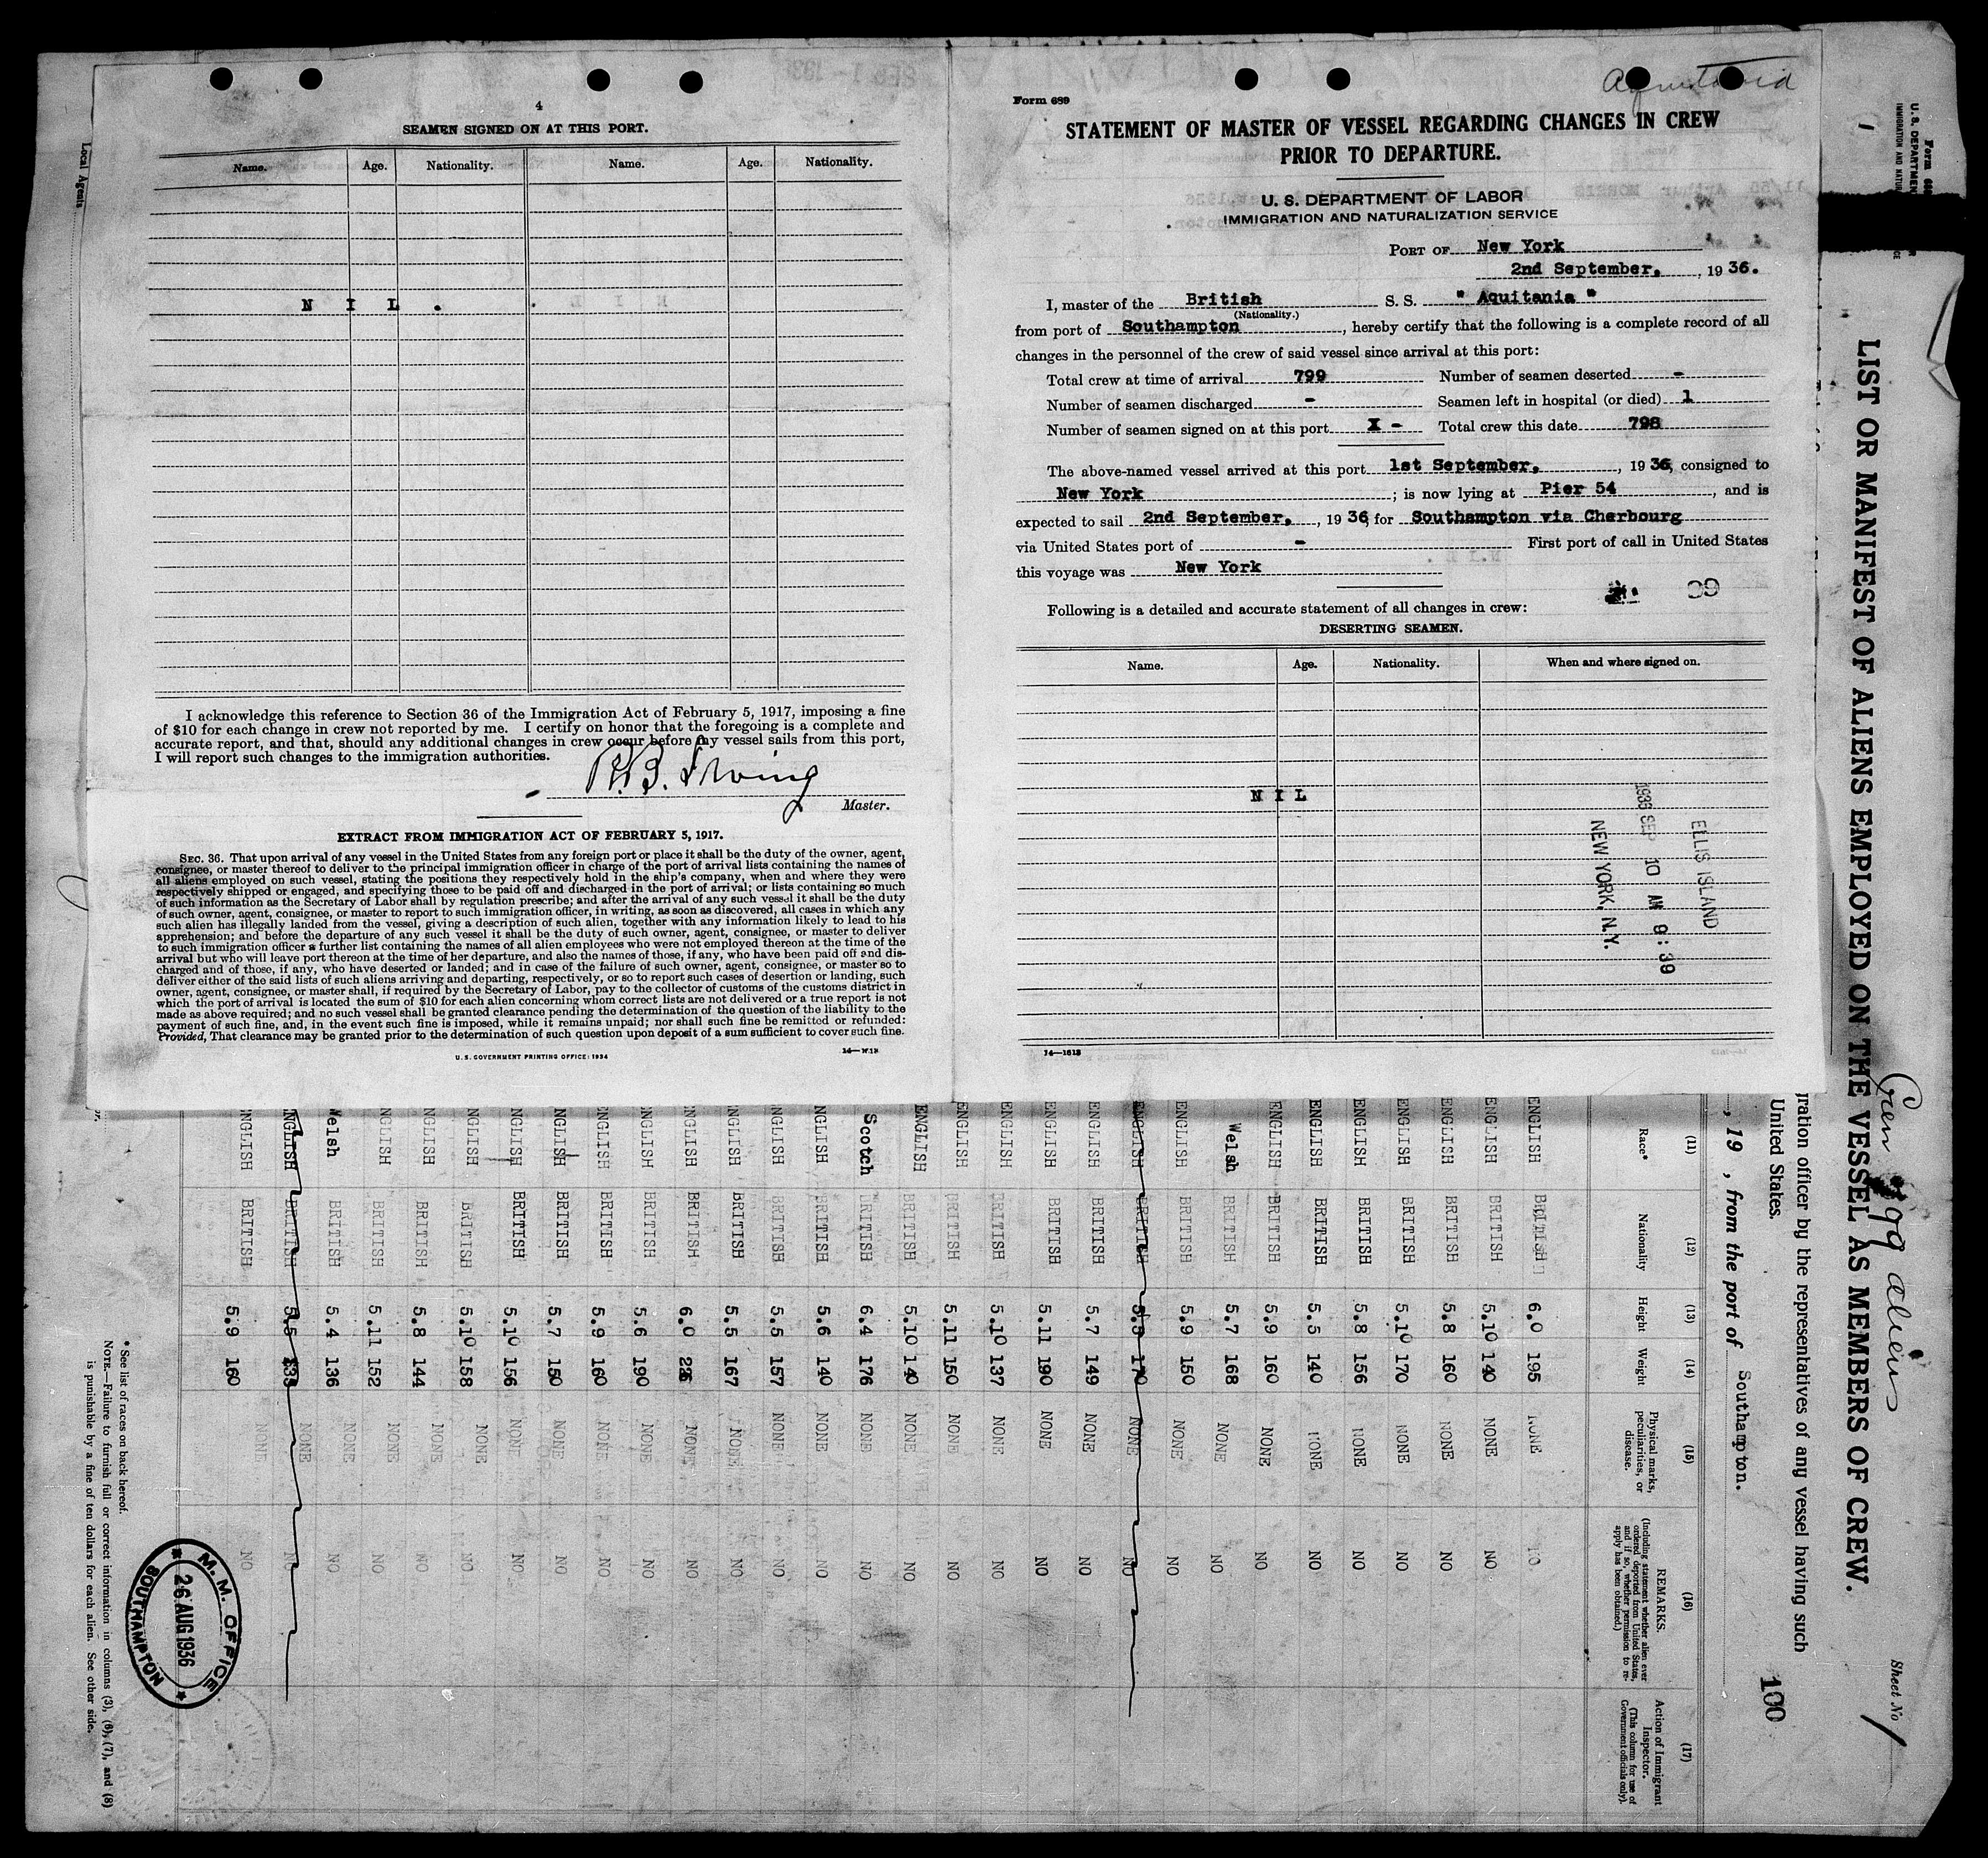 4
SEAMEN SIGNED ON AT THIS PORT.
Name. Age. Nationality. Name. Age. Nationality.
N I L .
I acknowledge this reference to Section 36 of the Immigration Act of February 5, 1917, imposing a fine
of $10 for each change in crew not reported by me. I certify on honor that the foregoing is a complete and
accurate report, and that, should any additional changes in crew occur before my vessel sails from this port,
I will report such changes to the immigration authorities.
R.B. Irving
Master.
EXTRACT FROM IMMIGRATION ACT OF FEBRUARY 5, 1917.
SEC. 36. That upon arrival of any vessel in the United States from any foreign port or place it shall be the duty of the owner, agent,
consignee, or master thereof to deliver to the principal immigration officer in charge of the port of arrival lists containing the names of
all aliens employed on such vessel, stating the positions they respectively hold in the ship's company, when and where they were
respectively shipped or engaged, and specifying those to be paid off and discharged in the port of arrival; or lists containing so much
of such information as the Secretary of Labor shall by regulation prescribe; and after the arrival of any such vessel it shall be the duty
of such owner, agent, consignee, or master to report to such immigration officer, in writing, as soon as discovered, all cases in which any
such alien has illegally landed from the vessel, giving a description of such alien, together with any information likely to lead to his
apprehension; and before the departure of any such vessel it shall be the duty of such owner, agent, consignee, or master to deliver
to such immigration officer a further list containing the names of all alien employees who were not employed thereon at the time of the
arrival but who will leave port thereon at the time of her departure, and also the names of those, if any, who have been paid off and dis-
charged and of those, if any, who have deserted or landed; and in case of the failure of such owner, agent, consignee, or master so to
deliver either of the said lists of such aliens arriving and departing, respectively, or so to report such cases of desertion or landing, such
owner, agent, consignee, or master shall, if required by the Secretary of Labor, pay to the collector of customs of the customs district in
which the port of arrival is located the sum of $10 for each alien concerning whom correct lists are not delivered or a true report is not
made as above required; and no such vessel shall be granted clearance pending the determination of the question of the liability to the
payment of such fine, and, in the event such fine is imposed, while it remains unpaid; nor shall such fine be remitted or refunded:
Provided, That clearance may be granted prior to the determination of such question upon deposit of a sum sufficient to cover such fine.
U. S. GOVERNMENT PRINTING OFFICE: 1934
Local Agents
Aquitania
Form 689
STATEMENT OF MASTER OF VESSEL REGARDING CHANGES IN CREW
PRIOR TO DEPARTURE.
U. S. DEPARTMENT OF LABOR
IMMIGRATION AND NATURALIZATION SERVICE
PORT OF New York
2nd September, , 19 36.
I, master of the British S. S. " Aquitania "
(Nationality.)
from port of Southampton , hereby certify that the following is a complete record of all
changes in the personnel of the crew of said vessel since arrival at this port:
Total crew at time of arrival 799 Number of seamen deserted -
Number of seamen discharged - Seamen left in hospital (or died) 1
Number of seamen signed on at this port X - Total crew this date 798
The above-named vessel arrived at this port 1st September, , 19 36, consigned to
New York ; is now lying at Pier 54 , and is
expected to sail 2nd September, , 19 36, for Southampton via Cherbourg
via United States port of - First port of call in United States
this voyage was New York
Following is a detailed and accurate statement of all changes in crew:
DESERTING SEAMEN.
Name. Age. Nationality. When and where signed on.
N I L
ELLIS ISLAND
1936 SEP 10 AM 9:39
NEW YORK, N.Y.
14—1613
U. S. DEPARTMENT
LIST OR MANIFEST OF ALIENS EMPLOYED ON THE VESSEL AS MEMBERS OF CREW.
Sheet No 1
100
ration officer by the representatives of any vessel having such
United States.
, 19 , from the port of Southampton.
(11) (12) (13) (14) (15) (16) (17)
Race* Nationality Height Weight Physical marks, peculiarities, or disease. REMARKS. (Including statement whether alien ever ordered deported from United States, and if so, whether permission to re-apply has been obtained.) Action of Immigrant Inspector. (This column for use of Government officials only).
ENGLISH BRITISH 6.0 195 NONE NO
ENGLISH BRITISH 5.10 140 NONE NO
ENGLISH BRITISH 5.8 160 NONE NO
ENGLISH BRITISH 5.10 170 NONE NO
ENGLISH BRITISH 5.8 156 NONE NO
ENGLISH BRITISH 5.5 140 NONE NO
ENGLISH BRITISH 5.9 160 NONE NO
Welsh BRITISH 5.7 168 NONE NO
ENGLISH BRITISH 5.9 150 NONE NO
ENGLISH BRITISH NONE NO
ENGLISH BRITISH 5.7 149 NONE NO
ENGLISH BRITISH 5.11 190 NONE NO
ENGLISH BRITISH 5.10 137 NONE NO
ENGLISH BRITISH 5.11 150 NONE NO
ENGLISH BRITISH 5.10 140 NONE NO
Scotch BRITISH 6.4 176 NONE NO
ENGLISH BRITISH 5.6 140 NONE NO
ENGLISH BRITISH 5.5 157 NONE NO
ENGLISH BRITISH 5.5 167 NONE NO
ENGLISH BRITISH 6.0 NONE NO
ENGLISH BRITISH 5.6 190 NONE NO
ENGLISH BRITISH 5.9 160 NONE NO
ENGLISH BRITISH 5.7 150 NONE NO
NGLISH BRITISH 5.10 156 NONE NO
NGLISH BRITISH 5.10 158 NONE NO
NGLISH BRITISH 5.8 144 NONE NO
NGLISH BRITISH 5.11 152 NONE NO
Welsh BRITISH 5.4 136 NONE NO
NGLISH BRITISH 5.5 NONE NO
NGLISH BRITISH 5.9 160 NONE NO
* See list of races on back hereof.
NOTE.—Failure to furnish full or correct information in columns (3), (6), (7), and (8)
is punishable by a fine of ten dollars for each alien. See other side.
M. M. OFFICE
26 AUG 1936
SOUTHAMPTON